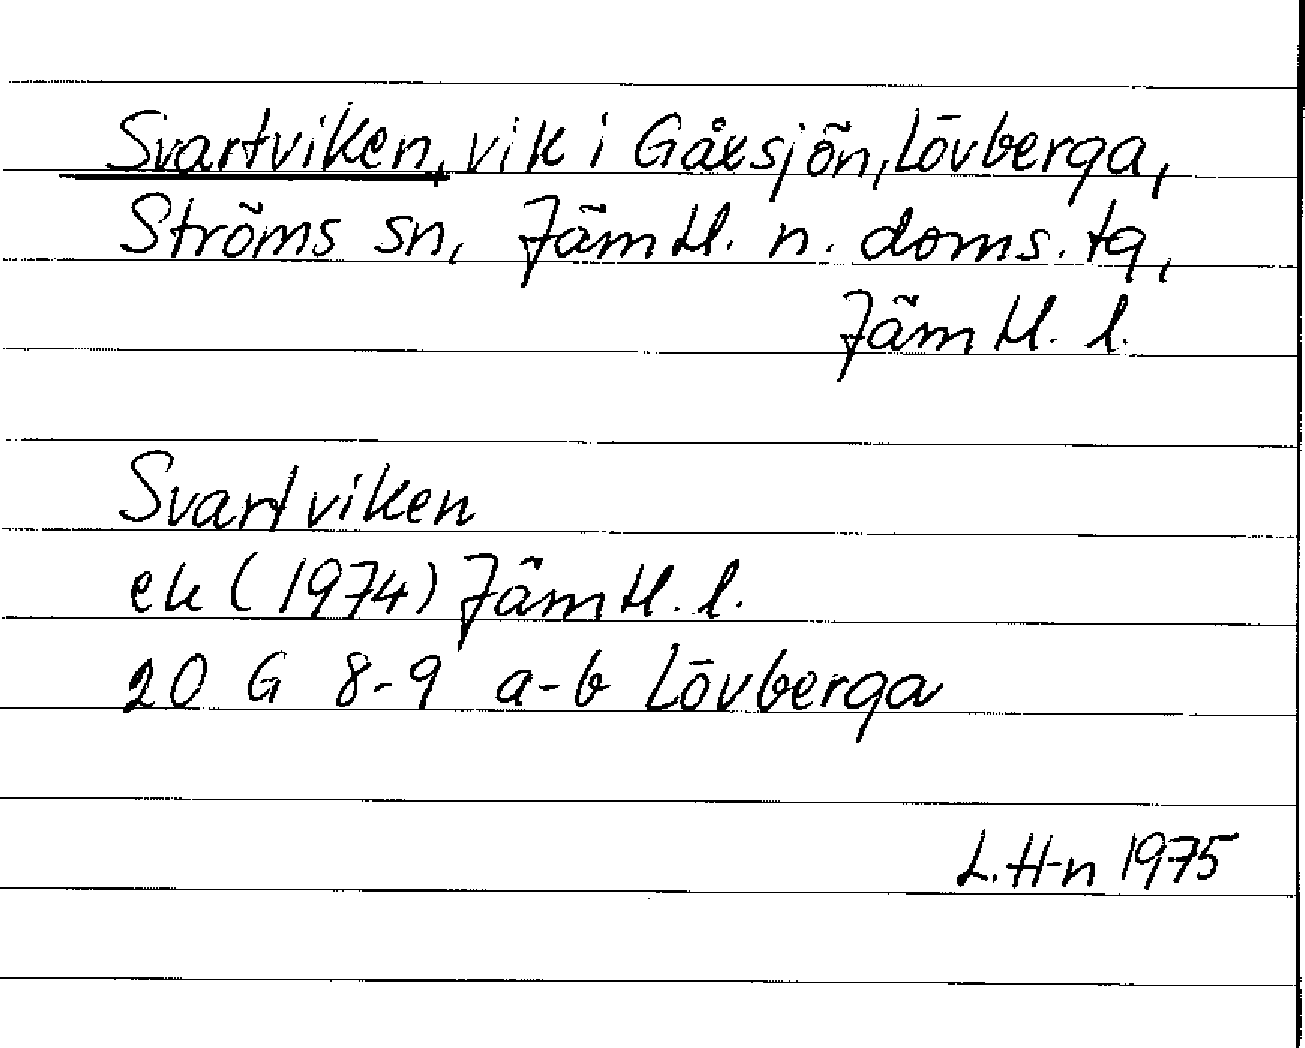 Svartviken, vik i Gåxsjön, Lövberga,
Ströms sn, Jämtl. n. doms. tg,
Jämtl. l.
Svartviken
ek (1974) Jämtl. l.
20 G 8-9 a-b Lövberga
L. H-n 1975